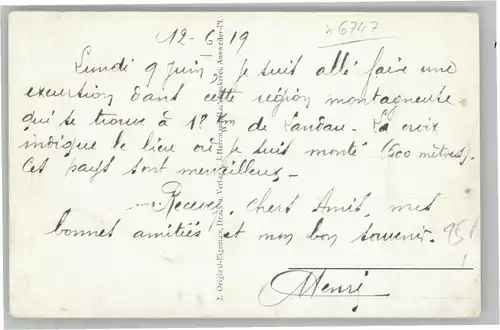 12-6-19
*6747
Lundi 9 juin, je suis allé faire une
excursion dans cette région montagneuse
qui se trouve à 18 Km de Landau. La croix
indique le lieu où je suis monté (600 mètres).
Ces pays sont merveilleux -
Recevez, chers Amis, mes
bonnes amitiés et mon bon souvenir.
Henri
2. Original-Eigentum, Druck u. Verlag Annweiler-Pf.